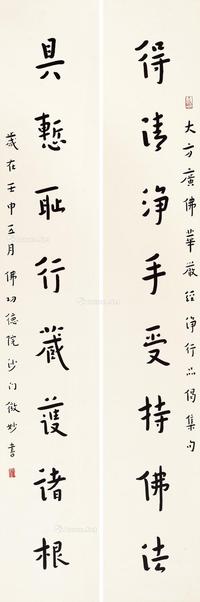 大方廣佛華嚴經淨行品偈集句
得清淨手受持佛法
具慙耻行藏護諸根
歲在壬申五月佛功德院沙門微妙書